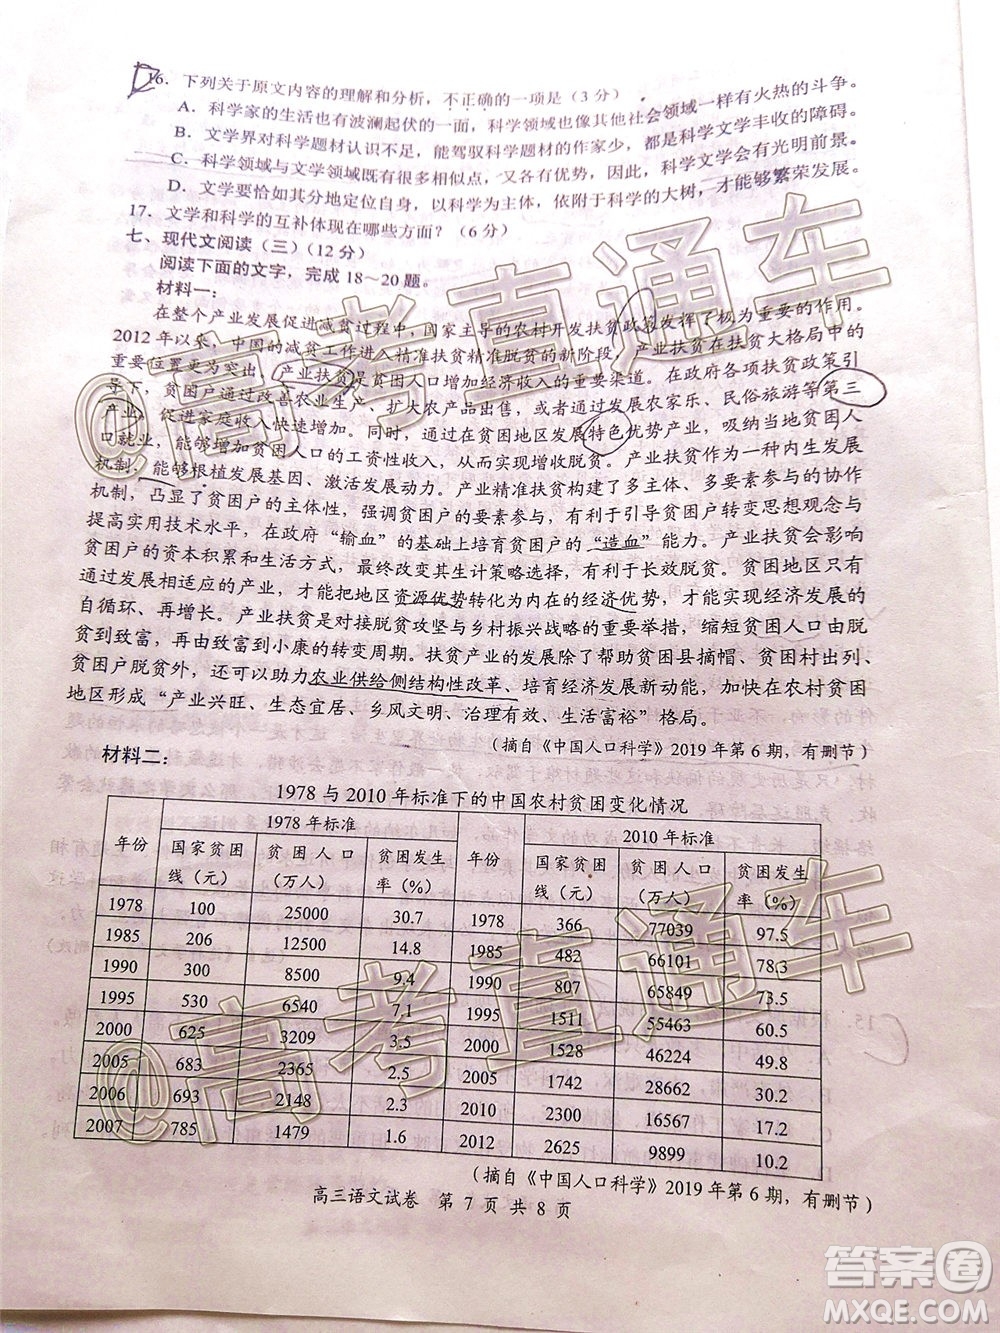 16. 下列关于原文内容的理解和分析，不正确的一项是（3 分）
A. 科学家的生活也有波澜起伏的一面，科学领域也像其他社会领域一样有火热的斗争。
B. 文学界对科学题材认识不足，能驾驭科学题材的作家少，都是科学文学丰收的障碍。
C. 科学领域与文学领域既有很多相似点，又各有优势，因此，科学文学会有光明前景。
D. 文学要恰如其分地定位自身，以科学为主体，依附于科学的大树，才能够繁荣发展。
17. 文学和科学的互补体现在哪些方面？（6 分）
七、现代文阅读（三）（12 分）
阅读下面的文字，完成 18～20 题。
材料一：
在整个产业发展促进减贫过程中，国家主导的农村开发扶贫政策发挥了极为重要的作用。
2012 年以来，中国的减贫工作进入精准扶贫精准脱贫的新阶段，产业扶贫在扶贫大格局中的
重要位置更为突出，产业扶贫是贫困人口增加经济收入的重要渠道。在政府各项扶贫政策引
导下，贫困户通过改善农业生产、扩大农产品出售，或者通过发展农家乐、民俗旅游等第三
产业，促进家庭收入快速增加。同时，通过在贫困地区发展特色优势产业，吸纳当地贫困人
口就业，能够增加贫困人口的工资性收入，从而实现脱贫。产业扶贫作为一种内生发展
机制，能够根植发展基因、激活发展动力。产业精准扶贫构建了多主体、多要素参与的协作
机制，凸显了贫困户的主体性，强调贫困户的要素参与，有利于引导贫困户转变思想观念与
提高实用技术水平，在政府“输血”的基础上培育贫困户的“造血”能力。产业扶贫会影响
贫困户的资本积累和生活方式，最终改变其生计策略选择，有利于长效脱贫。贫困地区只有
通过发展相适应的产业，才能把地区资源优势转化为内在的经济优势，才能实现经济发展的
自循环、再增长。产业扶贫是对接脱贫攻坚与乡村振兴战略的重要举措，缩短贫困人口由脱
贫到致富，再由致富到小康的转变周期。扶贫产业的发展除了帮助贫困县摘帽、贫困村出列、
贫困户脱贫外，还可以助力农业供给侧结构性改革、培育经济发展新动能，加快在农村贫困
地区形成“产业兴旺、生态宜居、乡风文明、治理有效、生活富裕”格局。
（摘自《中国人口科学》2019 年第 6 期，有删节）
材料二：
1978 与 2010 年标准下的中国农村贫困变化情况
年份 1978 年标准 年份 2010 年标准
国家贫困线（元） 贫困人口（万人） 贫困发生率（%） 国家贫困线（元） 贫困人口（万人） 贫困发生率（%）
1978 100 25000 30.7 1978 366 77039 97.5
1985 206 12500 14.8 1985 482 66101 78.3
1990 300 8500 9.4 1990 807 65849 73.5
1995 530 6540 7.1 1995 1511 55463 60.5
2000 625 3209 3.5 2000 1528 46224 49.8
2005 683 2365 2.5 2005 1742 28662 30.2
2006 693 2148 2.3 2010 2300 16567 17.2
2007 785 1479 1.6 2012 2625 9899 10.2
（摘自《中国人口科学》2019 年第 6 期，有删节）
高三语文试卷 第 7 页 共 8 页
@高考直通车
@高考直通车
答案圈
MXQE.COM